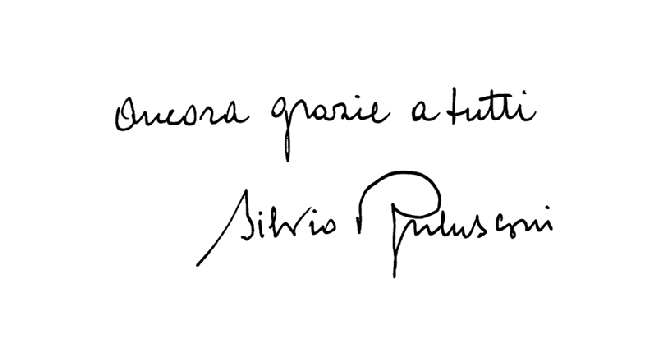 Ancora grazie a tutti
Silvio Berlusconi